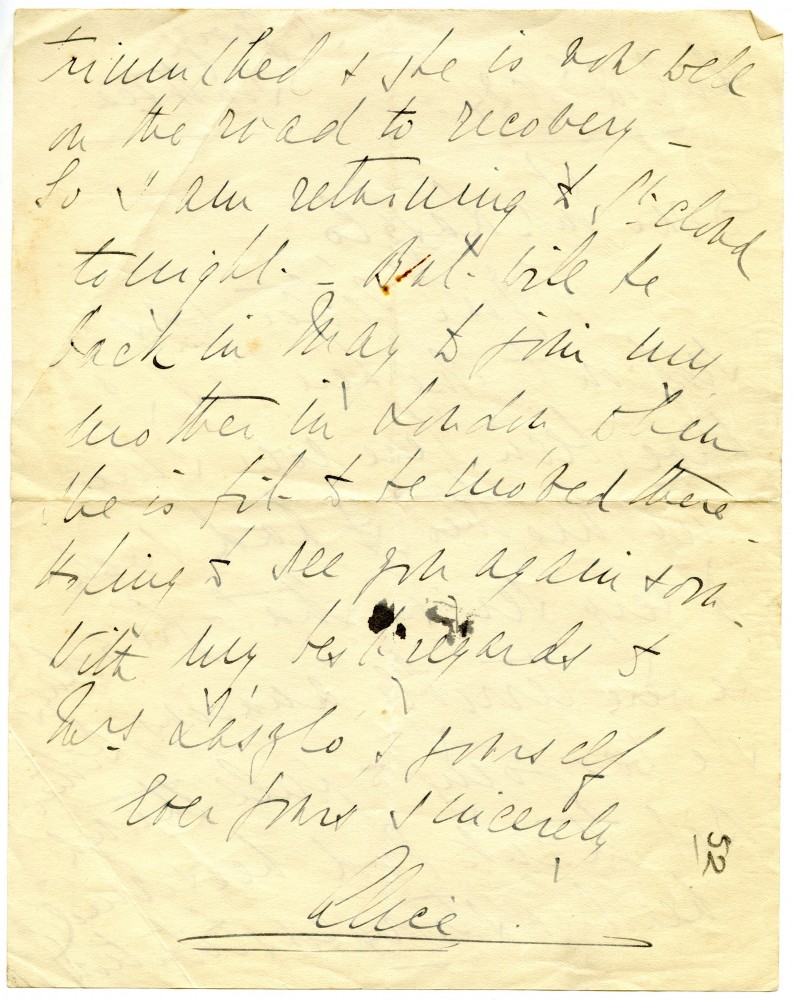 triumphed & she is now well
on the road to recovery –
So I am returning to St. Cloud
tonight. – But will be
back in May to join my
mother in London, when
she is fit to be moved there.
Hoping to see you again soon.
With my best regards to
Mrs László, & yourself
Ever yours sincerely
Alice
52